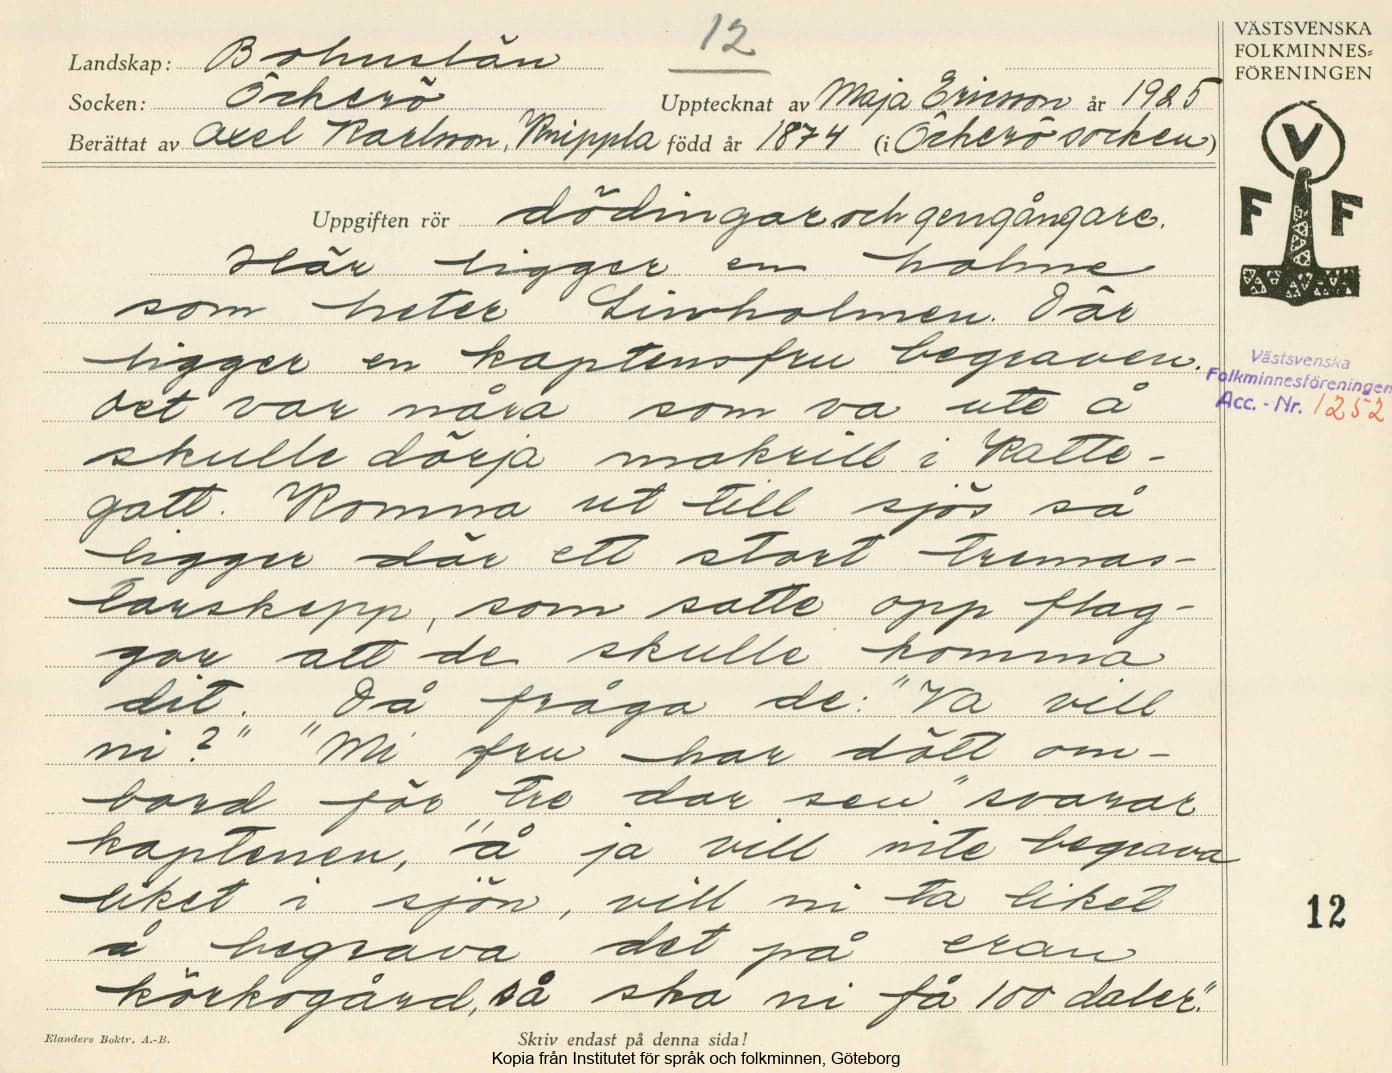 12
VÄSTSVENSKA
FOLKMINNES=
FÖRENINGEN
Landskap: Bohuslän
Socken: Öckerö
Upptecknat av Maja Ericsson år 1925
Berättat av Axel Karlsson, Knippla född år 1874 (i Öckerö socken)
V
F F
Uppgiften rör dödingar och gengångare.
Här ligger en holme
som heter Linholmen. Där
ligger en kaptensfru begraven.
Det var nåra som va ute å
skulle dörja makrill i Katte-
gatt. Komma ut till sjös så
ligger där ett stort tremas-
tarskepp, som satte opp flag-
gor att de skulle komma
dit. Då fråga de: "Va vill
ni?" "Mi fru har dött om-
bord för tre dar sen" svarar
kaptenen, "å ja vill inte begrava
liket i sjön, vill ni ta liket
å begrava det på eran
körkogård, så ska ni få 100 daler."
Västsvenska
Folkminnesföreningen
Acc. - Nr. 1252
12
Elanders Boktr. A.-B.
Skriv endast på denna sida!
Kopia från Institutet för språk och folkminnen, Göteborg